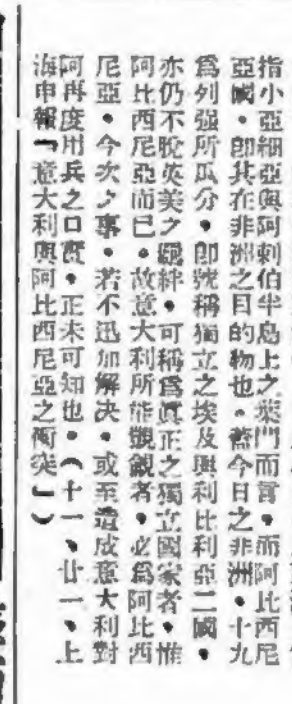 指小亞細亞與阿剌伯半島上之葉門而言。而阿比西尼
亞國。卽其在非洲之目的物也。蓋今日之非洲。十九
爲列强所瓜分。卽號稱獨立之埃及與利比利亞二國。
亦仍不脫英美之羈絆。可稱爲眞正之獨立國家者。惟
阿比西尼亞而已。故意大利所能覬覦者。必爲阿比西
尼亞。今次之事。若不迅加解決。或至造成意大利對
阿再度用兵之口實。正未可知也。（十一、廿一、上
海申報『意大利與阿比西尼亞之衝突』）